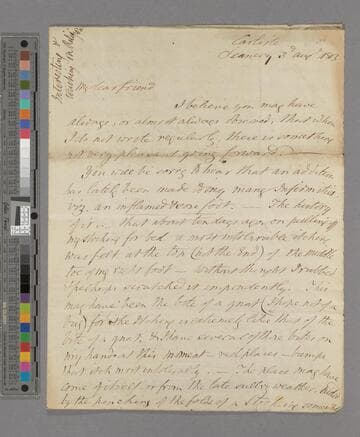 Interesting &
touching
Carlisle
Deanery 3d Augt 18
My dear friend
I believe you may have
always, or almost always observed, that when
I do not write regularly, there is something
not very pleasant going forward.
You will be sorry to hear that an addition
has lately been made to my many Infirmities
viz. an inflamed foot. — The history
of it is — that about ten days ago, on pulling off
my stocking for bed a most intolerable itching
was felt at the top (not the end) of the middle
toe of my right foot — all the night I rubbed
& perhaps scratched it imprudently. This
may have been the bite of a gnat (I hope not of a
) for the itching is extremely like that of the
bite of a gnat, & I have several of their bites on
my hand at this moment — red places — bumps
that itch most intolerably. — The place may have
come of itself or from the late sultry weather,
by the pinching of the folds of a stocking some